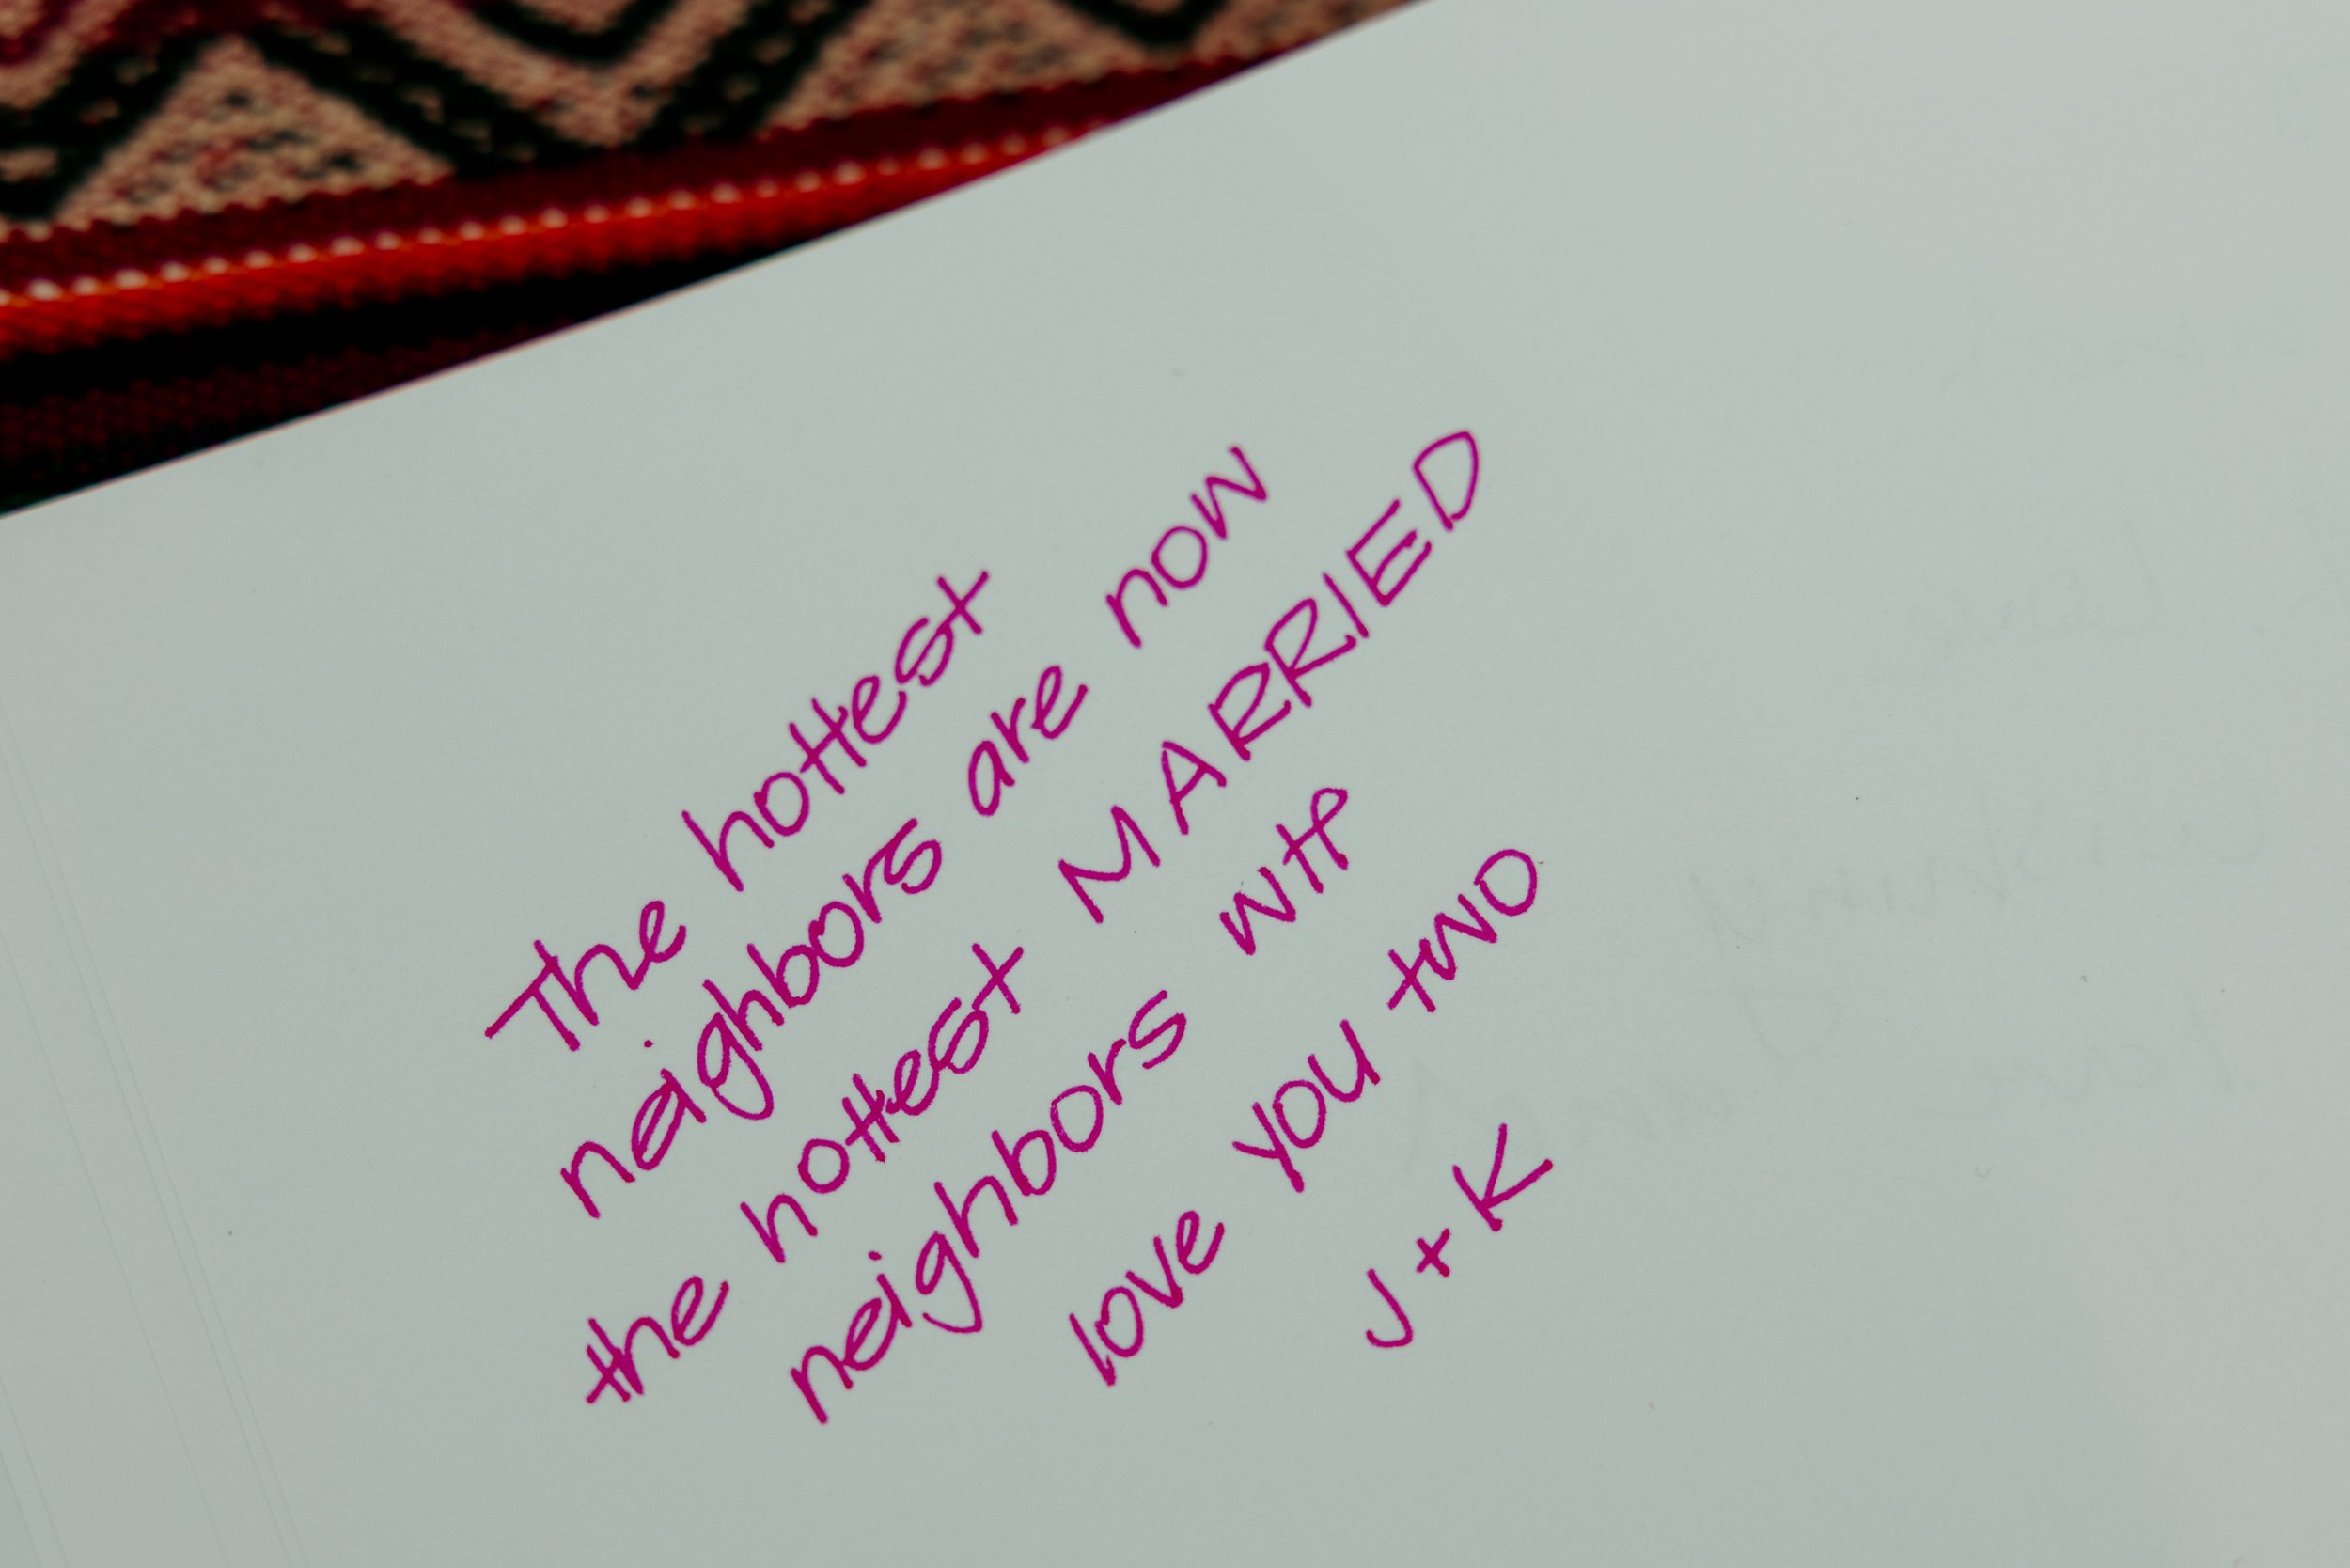 The hottest
neighbors are now
the hottest MARRIED
neighbors
love you two
J + K